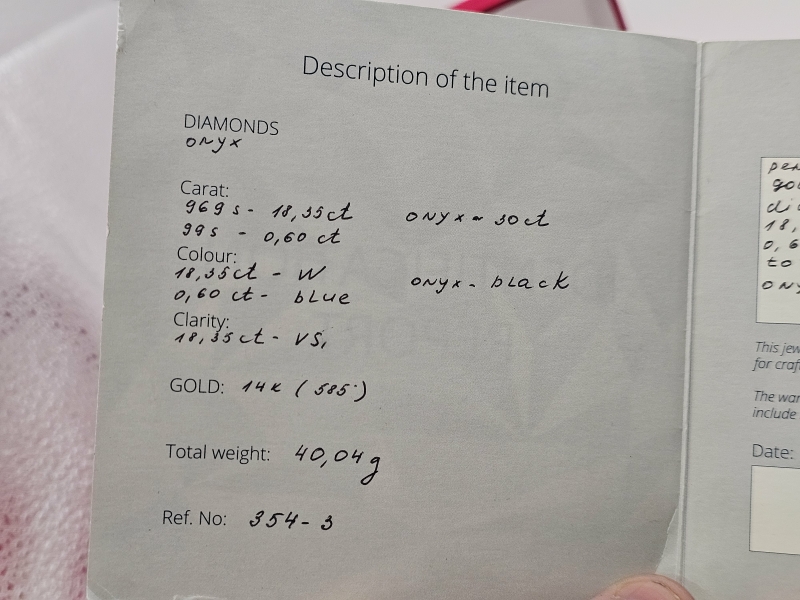 Description of the item
DIAMONDS
onyx
Carat:
969 s - 18,35ct onyx ~ 30 ct
99 s - 0,60 ct
Colour:
18,35ct - W onyx - black
0,60 ct - blue
Clarity:
18,35ct - VS,
GOLD: 14k (585°)
Total weight: 40,04g
Ref. No: 354-3
go
di
18,
0, 6
to
ony
This jew
for craf
The war
include
Date: